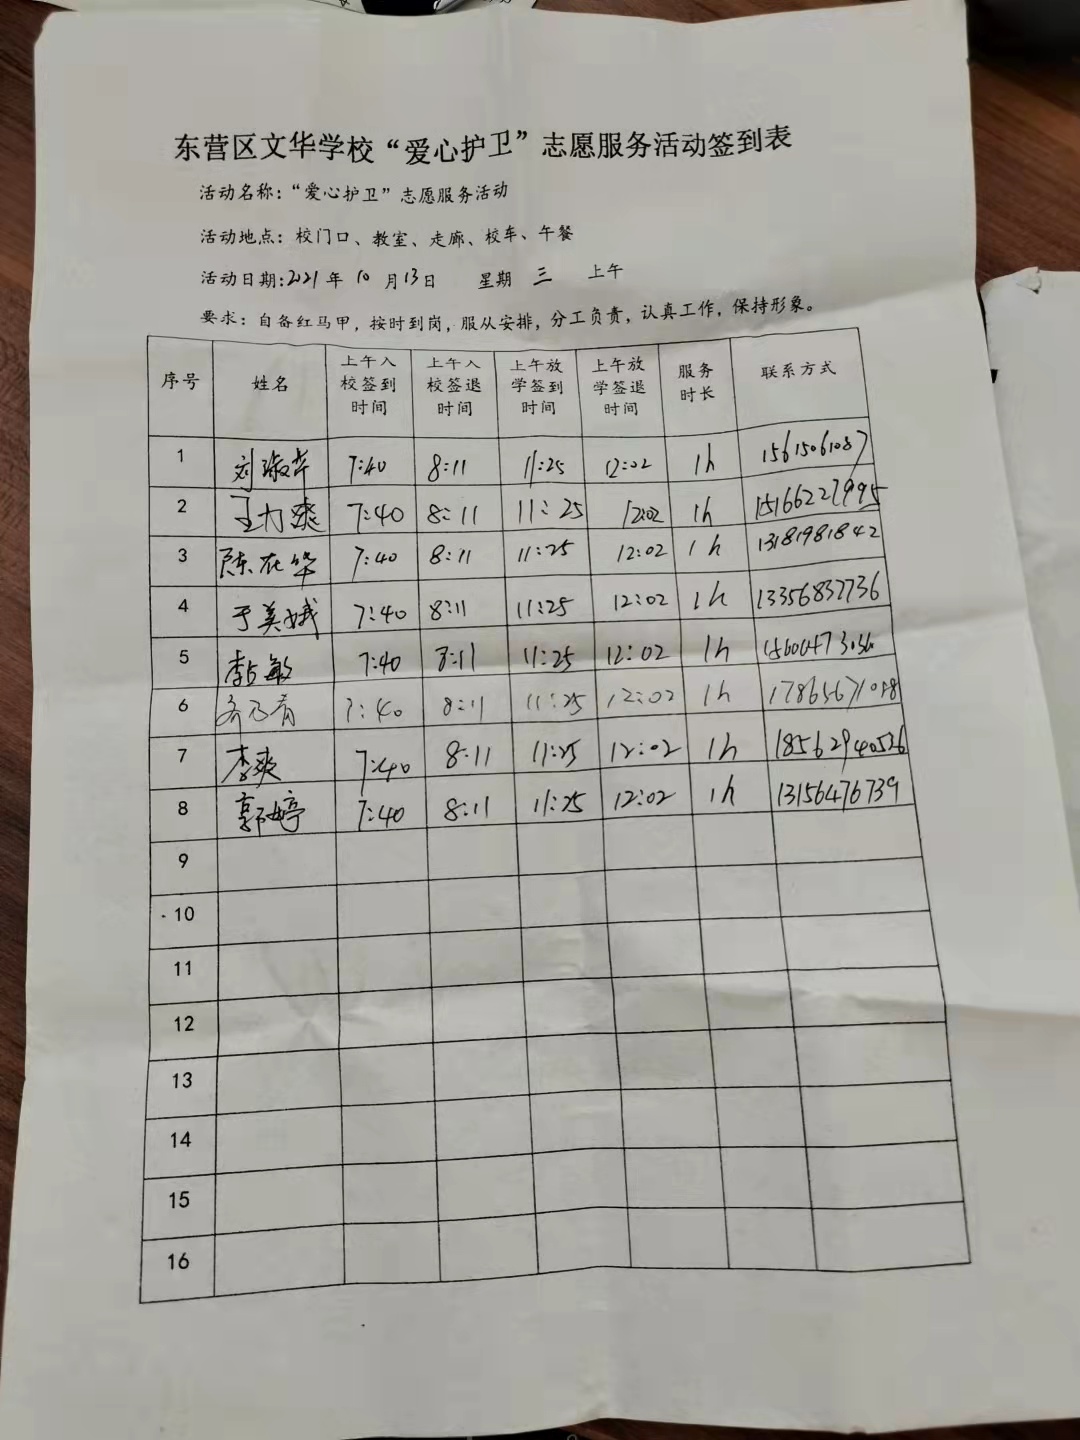 东营区文华学校“爱心护卫”志愿服务活动签到表
活动名称：“爱心护卫”志愿服务活动
活动地点：校门口、教室、走廊、校车、午餐
活动日期：2021年 10 月 13日 星期 三 上午
要求：自备红马甲，按时到岗，服从安排，分工负责，认真工作，保持形象。
序号 姓名 上午入校签到时间 上午入校签退时间 上午放学签到时间 上午放学签退时间 服务时长 联系方式
1 刘淑芹 7:40 8:11 11:25 12:02 1h 15615061087
2 王力爽 7:40 8:11 11:25 12:02 1h 15166227995
3 陈在华 7:40 8:11 11:25 12:02 1h 13181981842
4 于美娥 7:40 8:11 11:25 12:02 1h 13356837736
5 李占敏 7:40 8:11 11:25 12:02 1h
6 7:40 8:11 11:25 12:02 1h
7 李爽 7:40 8:11 11:25 12:02 1h 18562940536
8 郭婷 7:40 8:11 11:25 12:02 1h 13156476739
9
10
11
12
13
14
15
16